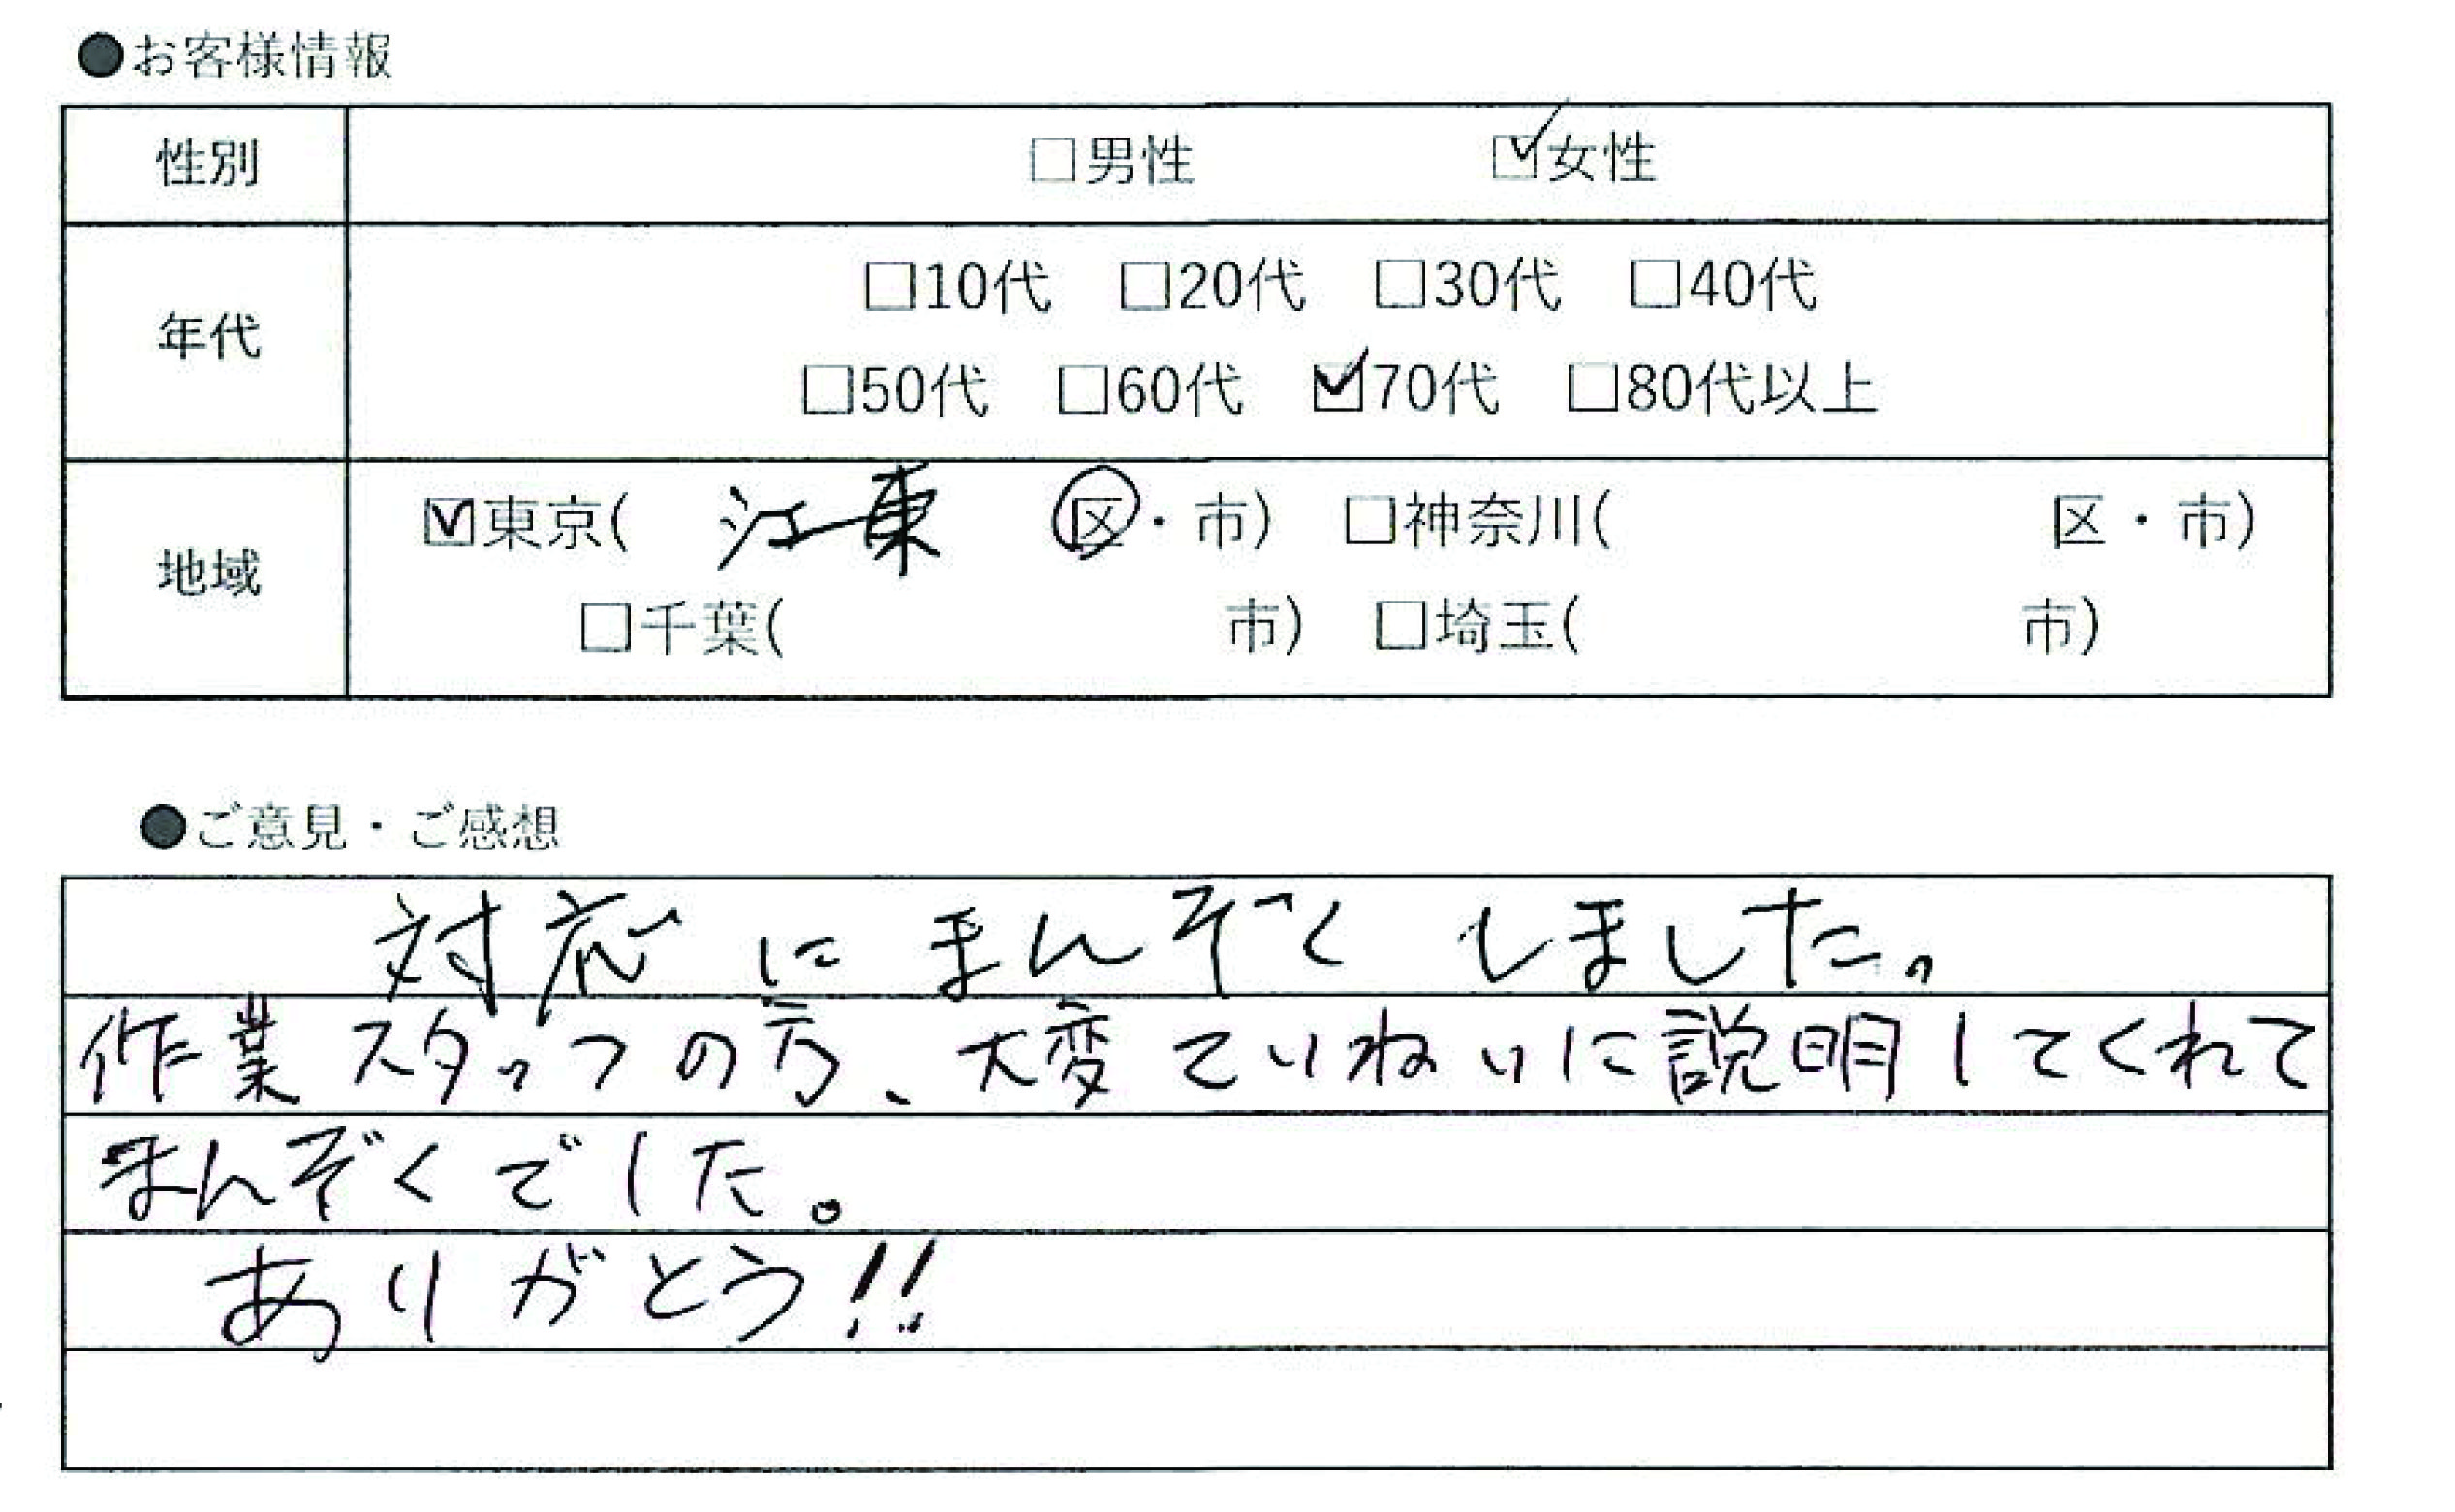 ●お客様情報
性別 □男性 ☑女性
年代 □10代 □20代 □30代 □40代
□50代 □60代 ☑70代 □80代以上
地域 ☑東京( 江東 区・市) □神奈川( 区・市)
□千葉( 市) □埼玉( 市)
●ご意見・ご感想
対応にまんぞくしました。
作業スタッフの方、大変ていねいに説明してくれて
まんぞくでした。
ありがとう!!